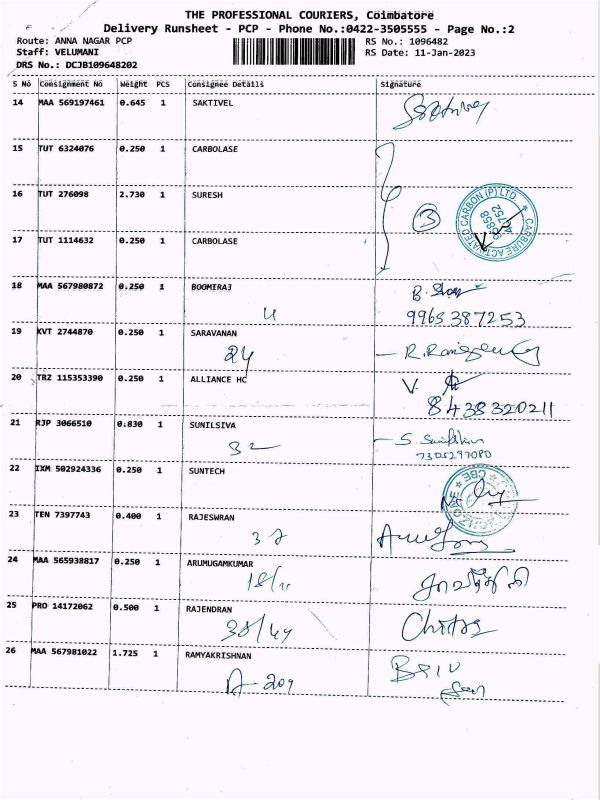 THE PROFESSIONAL COURIERS, Coimbatore
Delivery Runsheet - PCP - Phone No.:0422-3505555 - Page No.:2
Route: ANNA NAGAR PCP RS No.: 1096482
Staff: VELUMANI RS Date: 11-Jan-2023
DRS No.: DCJB109648202
S No Consignment No Weight PCS Consignee Details Signature
14 MAA 569197461 0.645 1 SAKTIVEL
15 TUT 6324076 0.250 1 CARBOLASE
16 TUT 276098 2.730 1 SURESH
3
CARBURE ACTIVATED CARBON (P) LTD
17 TUT 1114632 0.250 1 CARBOLASE
18 MAA 567980872 0.250 1 BOOMIRAJ
9965387253
19 KVT 2744870 0.250 1 SARAVANAN
24
20 TRZ 115353390 0.250 1 ALLIANCE HC
8438320211
21 RJP 3066510 0.830 1 SUNILSIVA
32
7305297080
22 IXM 502924336 0.250 1 SUNTECH
CBE
23 TEN 7397743 0.400 1 RAJESWRAN
24 MAA 565938817 0.250 1 ARUMUGAMKUMAR
25 PRO 14172062 0.500 1 RAJENDRAN
38/44
26 MAA 567981022 1.725 1 RAMYAKRISHNAN
A-209